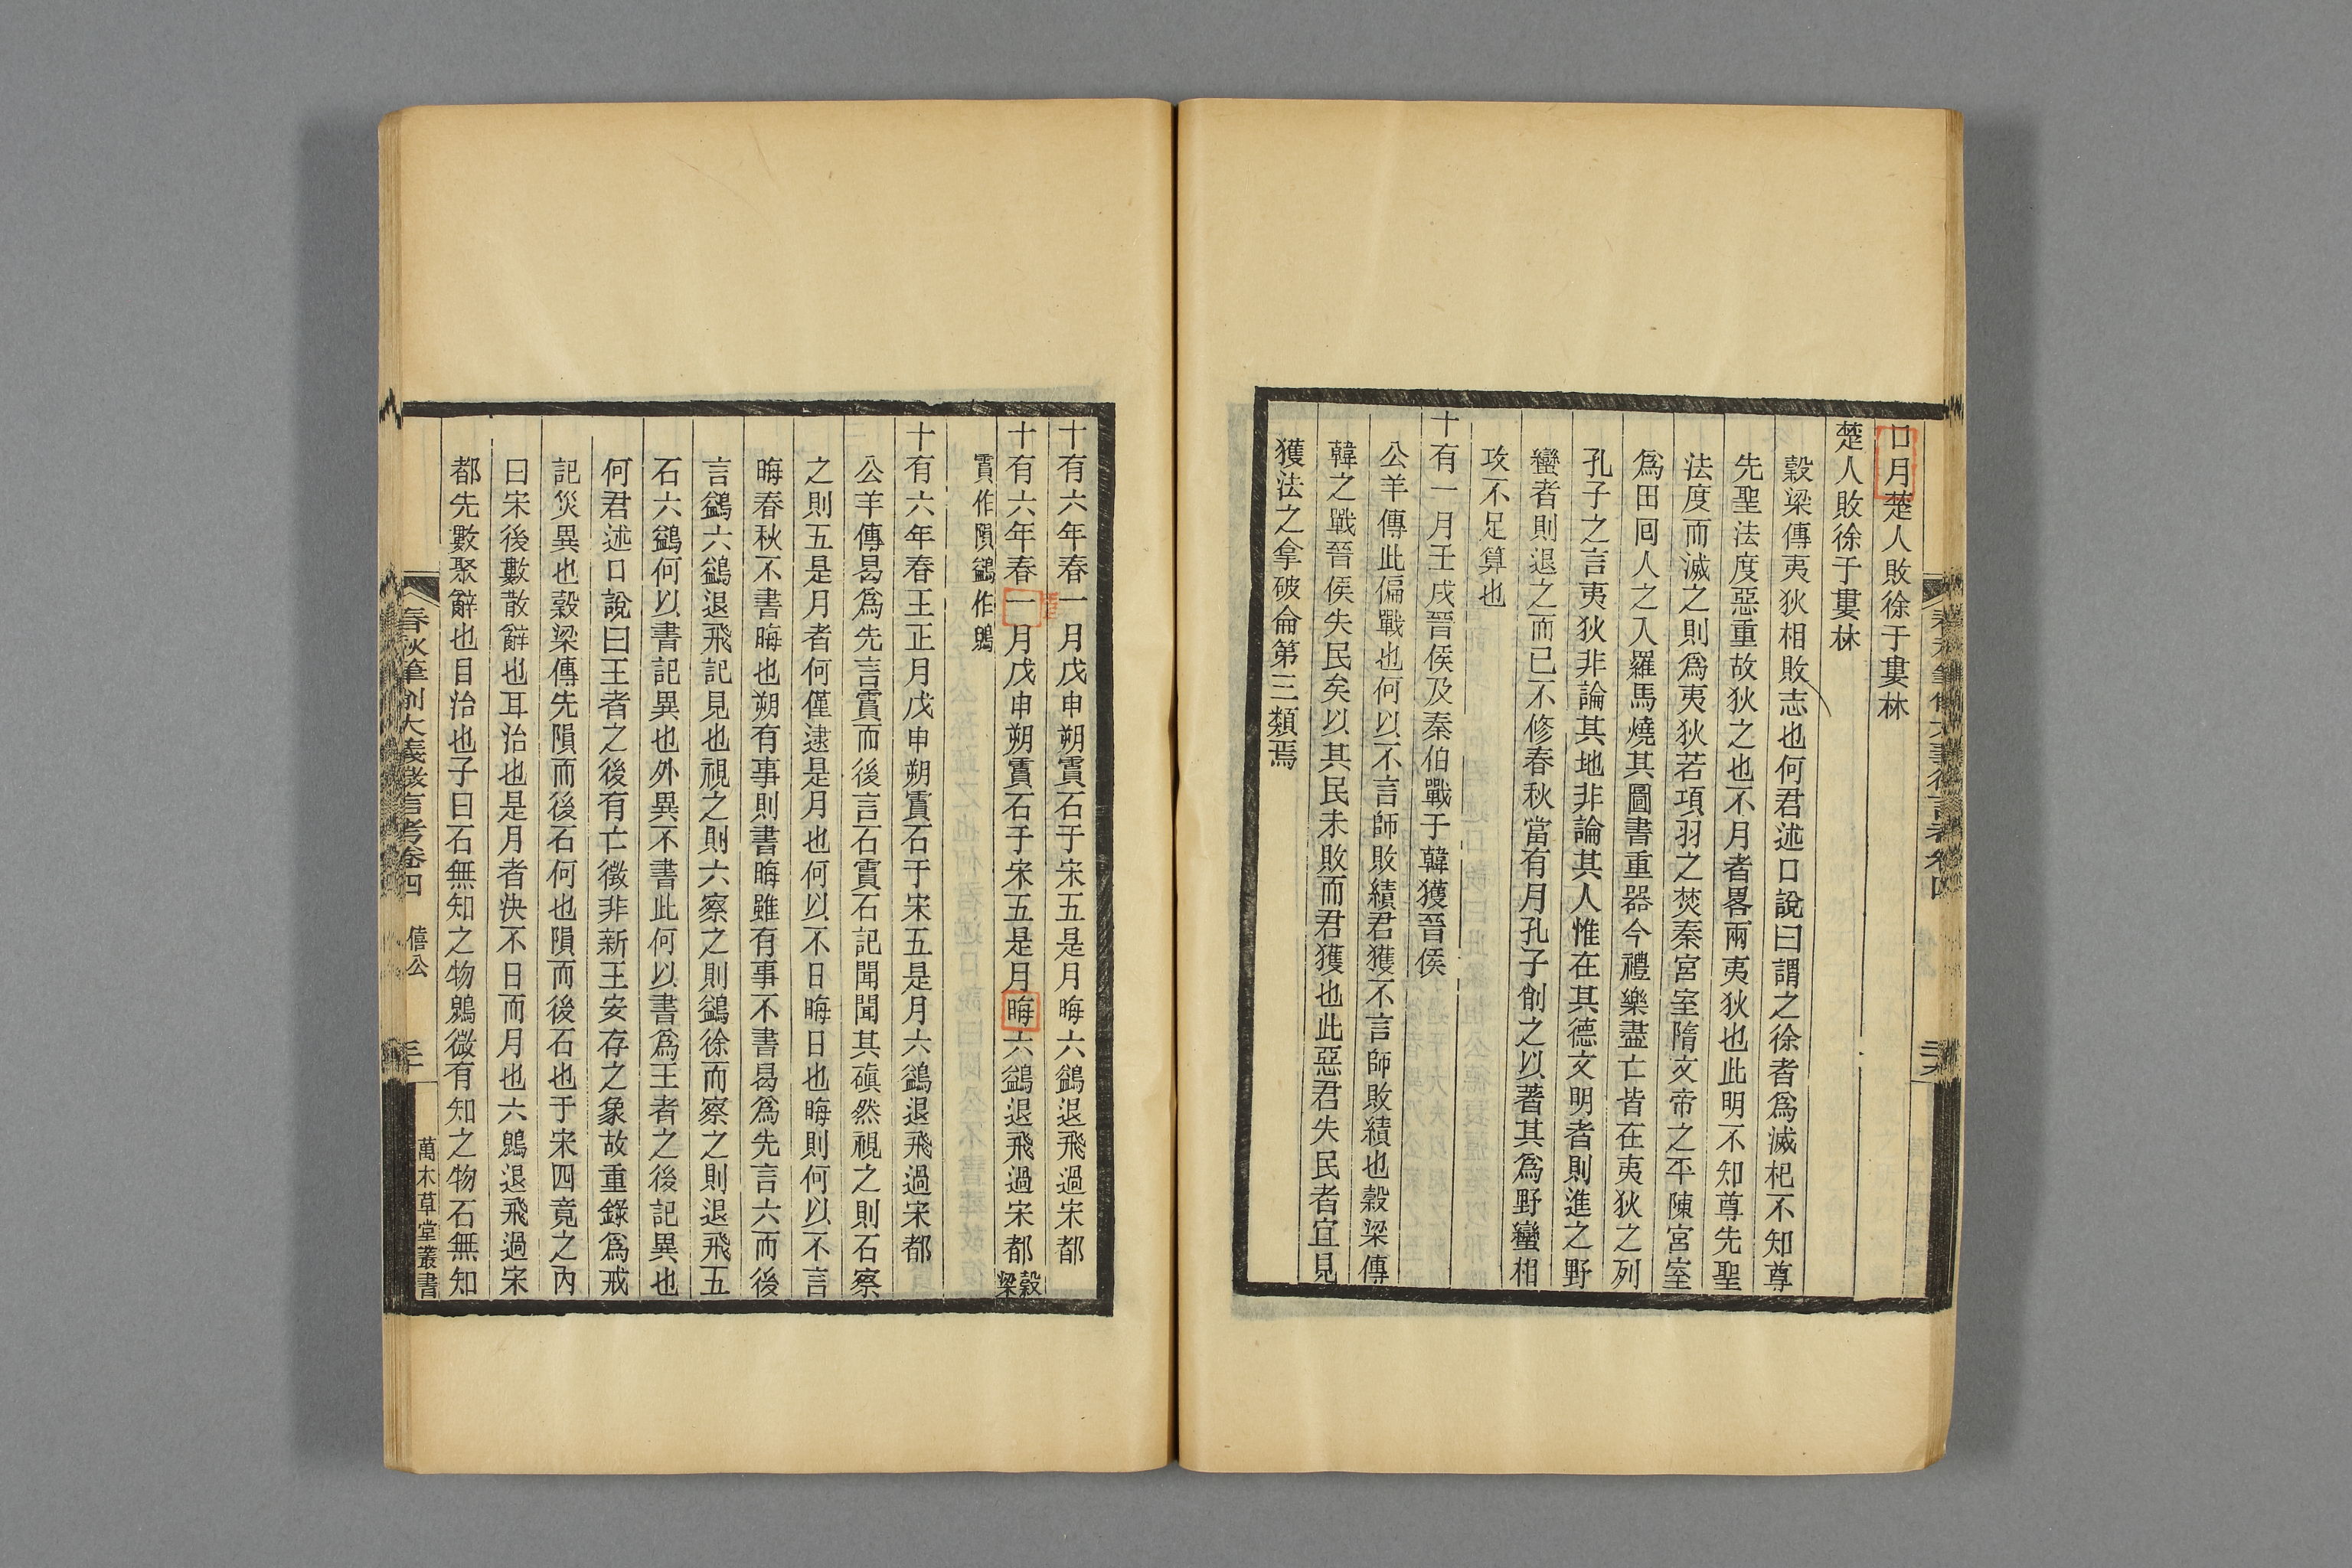 口月楚人敗徐于婁林
楚人敗徐于婁林
穀梁傳夷狄相敗志也何君述口說曰謂之徐者爲滅杞不知尊
先聖法度惡重故狄之也不月者畧兩夷狄也此明不知尊先聖
法度而滅之則爲夷狄若項羽之焚秦宮室隋文帝之平陳宮室
爲田囘人之入羅馬燒其圖書重器今禮樂盡亡皆在夷狄之列
孔子之言夷狄非論其地非論其人惟在其德文明者則進之野
蠻者則退之而已不修春秋當有月孔子削之以著其爲野蠻相
攻不足算也
十有一月壬戌晉侯及秦伯戰于韓獲晉侯
公羊傳此偏戰也何以不言師敗績君獲不言師敗績也穀梁傳
韓之戰晉侯失民矣以其民未敗而君獲也此惡君失民者宜見
獲法之拿破侖第三類焉
十有六年春一月戊申朔霣石于宋五是月晦六鷁退飛過宋都
十有六年春一月戊申朔霣石于宋五是月晦六鷁退飛過宋都穀梁
霣作隕鷁作鶂
十有六年春王正月戊申朔霣石于宋五是月六鷁退飛過宋都
公羊傳曷爲先言霣而後言石霣石記聞聞其磌然視之則石察
之則五是月者何僅逮是月也何以不日晦日也晦則何以不言
晦春秋不書晦也朔有事則書晦雖有事不書曷爲先言六而後
言鷁六鷁退飛記見也視之則六察之則鷁徐而察之則退飛五
石六鷁何以書記異也外異不書此何以書爲王者之後記異也
何君述口說曰王者之後有亡徵非新王安存之象故重錄爲戒
記災異也穀梁傳先隕而後石何也隕而後石也于宋四竟之內
曰宋後數散辭也耳治也是月者決不日而月也六鶂退飛過宋
都先數聚辭也目治也子曰石無知之物鶂微有知之物石無知
春秋筆削大義微言考卷四 僖公 三十 萬木草堂叢書